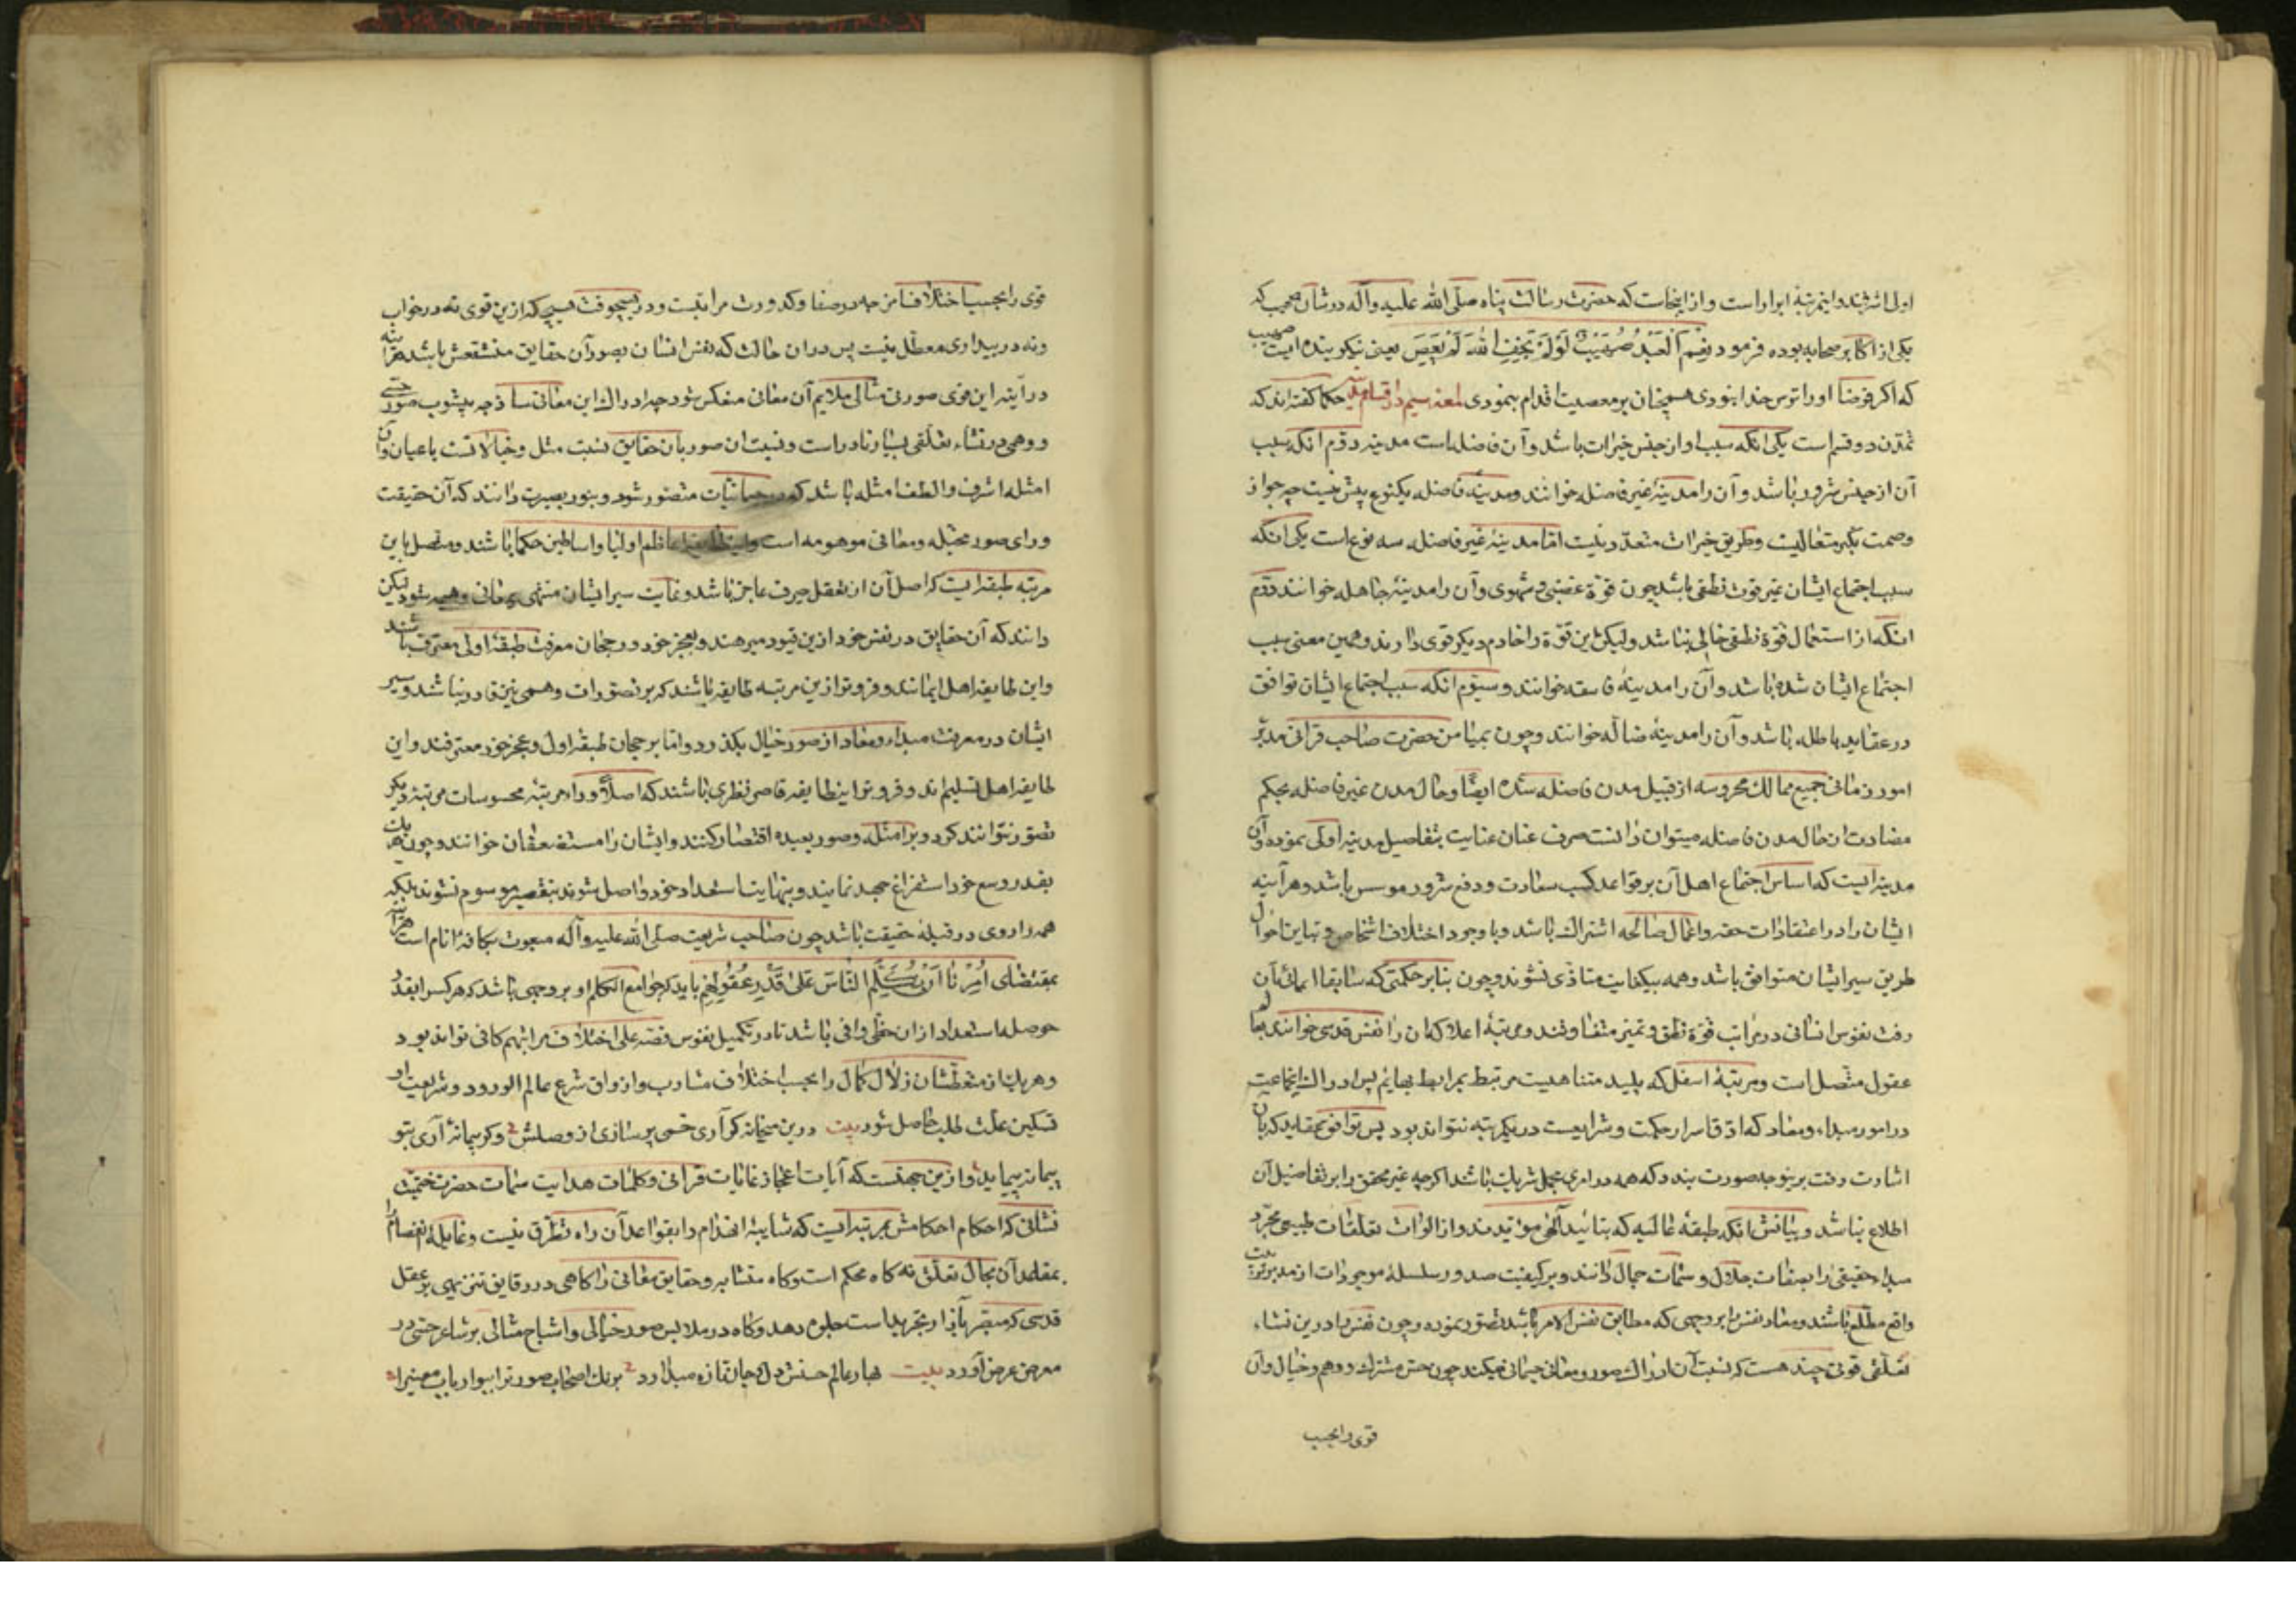 اول اشرفند و این مرتبهٔ ابرار است و از اینجاست که حضرت رسالت پناه صلّی الله علیه وآله در شأن صهیب که
یکی از اکابر صحابه بوده فرمود نِعْمَ العَبْدُ صُهَیْبٌ لَوْ لَمْ یَخَفِ اللهَ لَمْ یَعْصِ یعنی نیکو بنده ایست صهیب
که اگر فرضا او را ترس خدا نبودی همچنان بر معصیت اقدام ننمودی لمعه سیم در اقسام مدینه حکما گفته اند که
تمدّن دو قسم است یکی انکه سبب او از جنس خیرات باشد و آن فاضله است مدینه دوم انکه سبب
آن از جنس شرور باشد و آن را مدینهٔ غیر فاضله خوانند و مدینهٔ فاضله یکنوع بیش نیست چه حق از
وصمت تکثر متعالیست و طریق خیرات متعدّد نیست امّا مدینهٔ غیر فاضله سه نوع است یکی انکه
سبب اجتماع ایشان غیر قوت نطقی باشد چون قوّة غضبی و شهوی و آن را مدینهٔ جاهله خوانند دوّم
انکه از استعمال قوّة نطقی خالی نباشد ولیکن این قوّة را خادم دیگر قوی دارند و همین معنی سبب
اجتماع ایشان شده باشد و آن را مدینهٔ فاسقه خوانند و سیّوم انکه سبب اجتماع ایشان توافق
در عقاید باطله باشد و آن را مدینهٔ ضالّه خوانند و چون بمیامن حضرت صاحب قرانی مدبّر
امور زمانی جمیع ممالک محروسه از قبیل مدن فاضله شده ایضًا و حال مدن غیر فاضله بحکم
مضادت از حال مدن فاضله میتوان دانست صرف عنان عنایت بتفاصیل مدینه اولی نموده و آن
مدینه ایست که اساس اجتماع اهل آن بر قواعد کسب سعادت و دفع شرور موسس باشد و هر آینه
ایشان را در اعتقادات حقه و اعمال صالحه اشتراک باشد و با وجود اختلاف اشخاص و تباین احوال
طریق سیر ایشان متوافق باشد و همه بیکغایت متأدّی شوند و چون بنابر حکمتی که سابقا ایمائی بآن
رفت نفوس انسانی در مراتب قوّة نطق و تمیز متفاوتند و مرتبهٔ اعلا که ان را نفس قدسی خوانند بعالم
عقول متّصل است و مرتبهٔ اسفل که پلید متناهیست مرتبط بمرابط بهایم پس ادراک اینجماعت
در امور مبداء و معاد که ادقّ اسرار حکمت و شرایعست در یکمرتبه نتواند بود پس توافق بعقاید که بآن
اشارت رفت برینوجه صورت بندد که همه در امری مجمل شریک باشند اگرچه غیر محقق را بر تفاصیل آن
اطلاع نباشد و بیانش انکه طبقهٔ عالیه که بتائید الهی مؤیدند و از الواث تعلّقات طبیعی مجرّد
مبداء حقیقی را بصفات جلال و سمات جمال دانند و بر کیفیت صدور سلسلهٔ موجودات از مدبر
واقع مطّلع باشند و معاد نفس را بر وجهی که مطابق نفس الامر باشد تصوّر نموده و چون نفس را درین نشاء
تعلّقی قوتی چند هست که نسبت آن ادراک صور و معانی جسمانی میکند چون حسّ مشترک و وهم و خیال و آن
قوی را بحسب
قوی را بحسب اختلاف امزجه در صفا و کدورت مراتبست و در هیچوقت هیچیک ازین قوی نه در خواب
و نه در بیداری معطّل نیست پس دران حالت که نفس انسان بصور آن حقایق منتقش باشد هراینه
در آینه این قوی صورتی مثالی ملایم آن معانی منعکس شود چه ادراک این معانی ساذجه بیشوب صور حسّی
و وهمی در نشاء تعلّقی بسیار نادر است و نسبت ان صور بان حقایق نسبت مثل و خیالاتست با عیان و آن
امثله اشرف و الطف امثله باشد که در جسمانیّات متصور شود و بنور بصیرت دانند که آن حقیقت
ورای صور مخیّله و معانی موهومه است و این طایفه اعاظم اولیا و اساطین حکما باشند و متصل باین
مرتبه طبقه ایست که اصل آن از تعقل صرف عاجز باشد و غایت سیر ایشان منتهی بمعانی وهمی شود لیکن
دانند که آن حقایق در نفس خود ازین قیود مبرهند و بعجز خود و رجحان معرفت طبقهٔ اولی معترف باشند
و این طایفه اهل ایمانند و فروتر ازین مرتبه طایفه باشند که بر تصورات وهمی نیز قادر نباشند و سیر
ایشان در معرفت مبداء و معاد از صور خیال نگذرد و امّا بر رجحان طبقهٔ اول و عجز خود معترفند و این
طایفه اهل تسلیم اند و فروتر اینطایفه قاصر نظری باشند که اصلاً و وراء مرتبهٔ محسوسات مرتبهٔ دیگر
تصوّر نتوانند کرد و بر امثله و صور بعیده اقتصار کنند و ایشان را مستضعفان خوانند و چون هریک
بقدر وسع خود استفراغ جهد نمایند و بنهایت استعداد خود واصل شوند بتقصیر موسوم نشوند بلکه
همه را روی در قبلهٔ حقیقت باشد چون صاحب شریعت صلّی الله علیه وآله مبعوث بکافهٔ انام است هراینه
بمقتضای اُمِرْنَا اَنْ نُکَلِّمَ النَّاسَ عَلیٰ قَدْرِ عُقُولِهِم باید که جوامع الکلم او بر وجهی باشد که هرکس را بقدر
حوصله استعداد از ان حظّی وافی باشد تا در تکمیل نفوس علی اختلاف مراتبهم کافی تواند بود
و هریک از متعطّشان زلال کمال را بحسب اختلاف مشارب و اذواق شرع عالم الورود و شریعت او
تسکین علّت طلب حاصل شود بیت درین میخانه گر آری خمی پر سازی از وصلش و گر پیمانهٔ آری بتو
پیمانه پیماید و ازین جهتست که آیات اعجاز غایات قرآنی و کلمات هدایت سمات حضرت ختمیت
نشانی که احکام احکامش بمرتبه ایست که شایبهٔ انخرام را بقواعد آن راه تطرّق نیست و غایلهٔ انفصام را
بمقاعد آن مجال تعلّق نه گاه محکم است و گاه متشابه و حقایق معانی را گاهی در دقایق تنزیهی بر عقل
قدسی که مبصر بانوار تجرید است جلوه دهد و گاه در ملابس صور خیالی و اشباح مثالی بر مشاعر حسّی در
معرض عرض آورد بیت بهار عالم حسنش دل و جان تازه میدارد برنگ اصحاب صورت را ببو ارباب معنی را